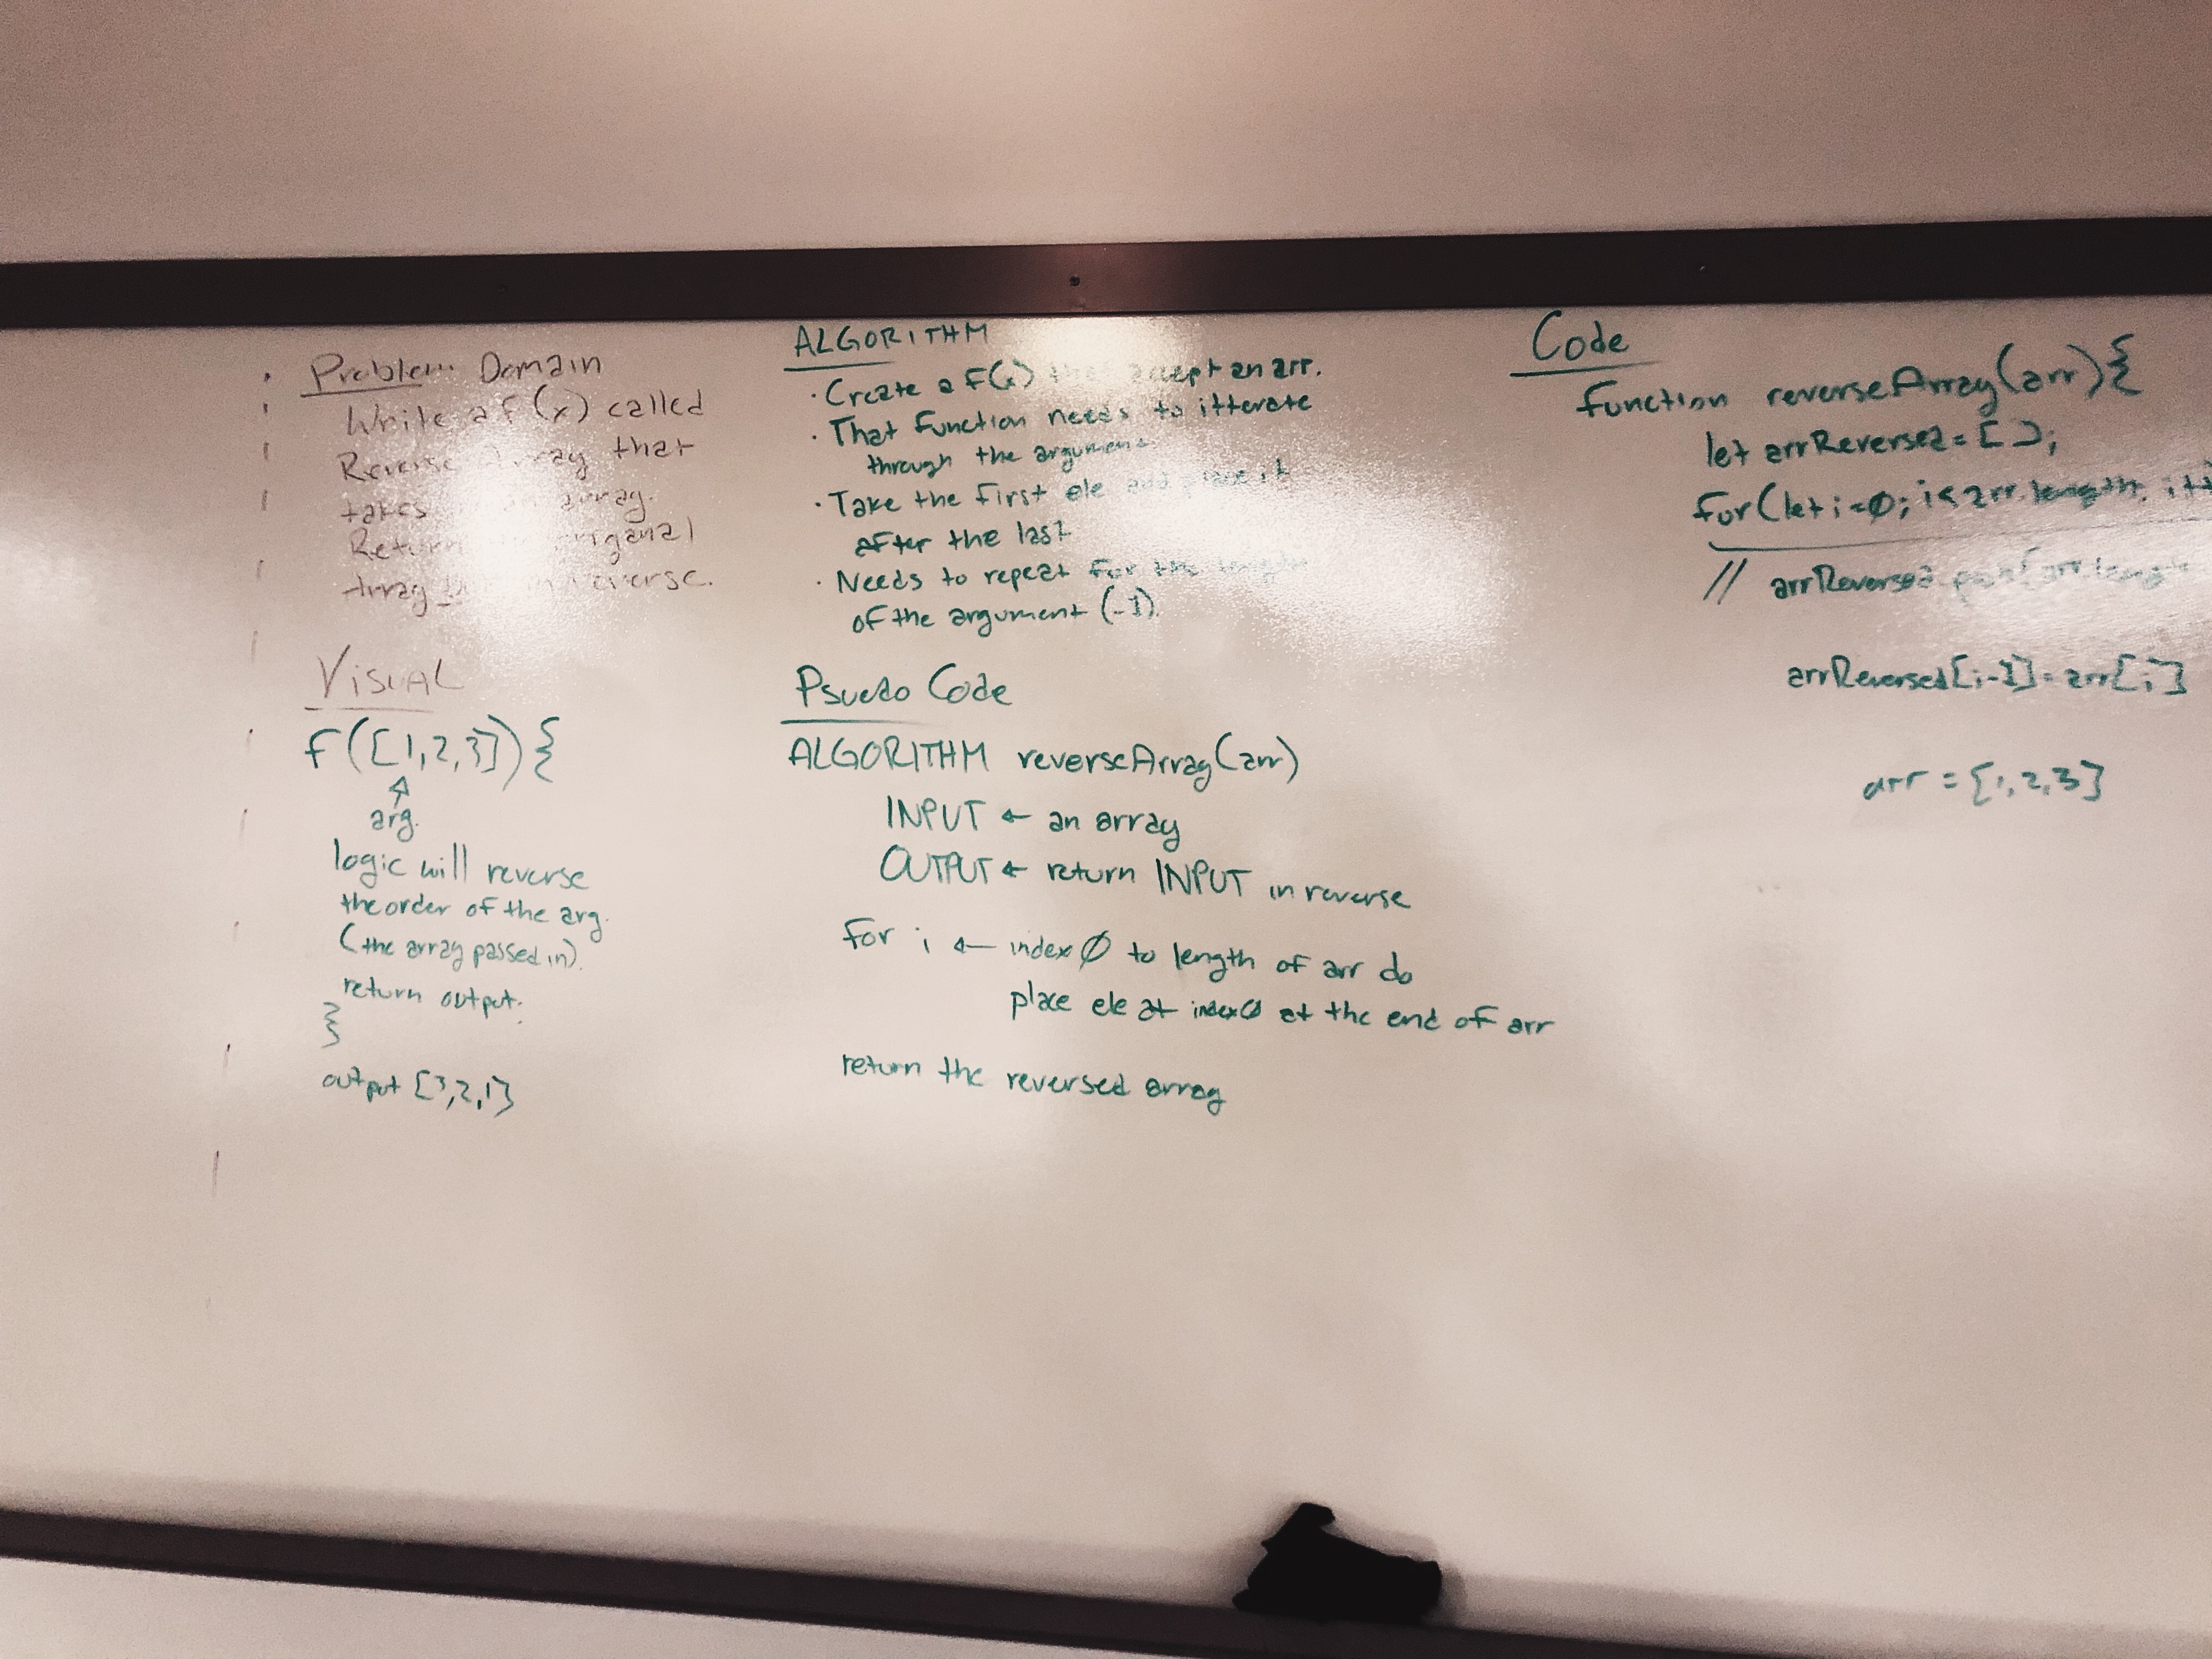 Problem Domain
Write a f(x) called
Reverse Array that
takes array.
Return origanal
Array in reverse.
VISUAL
f([1,2,3]){
arg.
logic will reverse
the order of the arg.
(the array passed in).
return output.
}
output [3,2,1]
ALGORITHM
· Create a f(x) accept an arr.
· That function needs to itterate
through the argument.
· Take the first ele and place it
after the last
· Needs to repeat for the length
of the argument (-1).
Psuedo Code
ALGORITHM reverseArray(arr)
INPUT ← an array
OUTPUT ← return INPUT in reverse
for i ← index 0 to length of arr do
place ele at index 0 at the end of arr
return the reversed array
Code
function reverseArray(arr){
let arrReversed = [];
for(let i=0; i< arr.length; i++
// arrReversed.push(arr.length
arrReversed[i-1] = arr[i]
arr = [1,2,3]